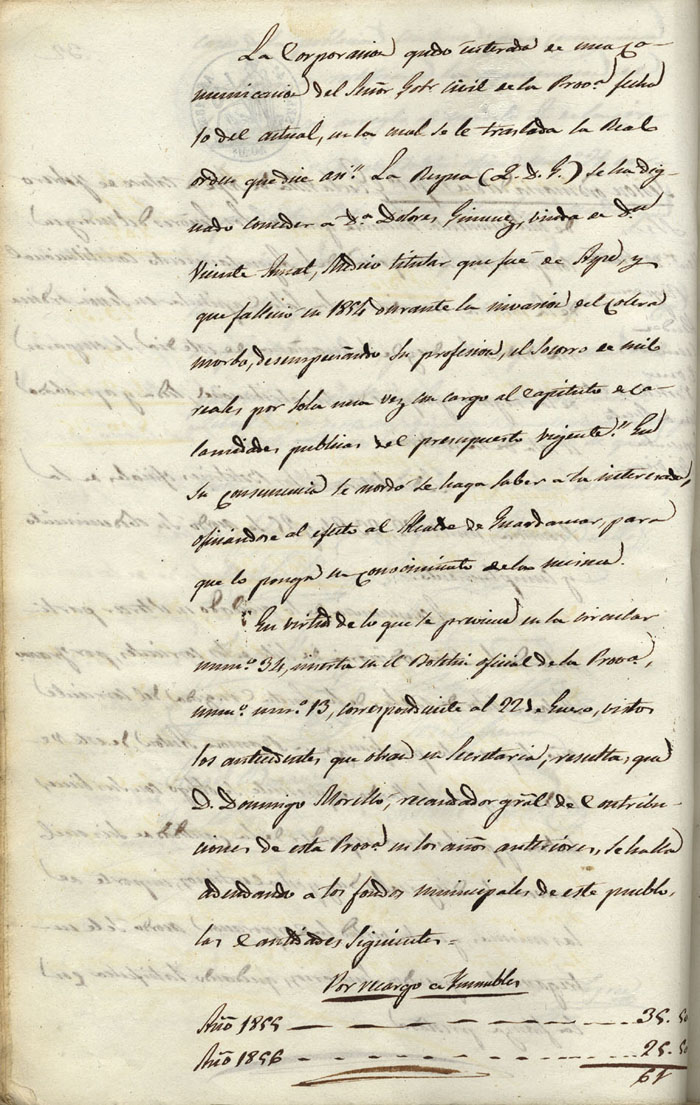 La Corporacion quedó enterada de una co-
municacion del Señor Gobr Civil de la Provª fecha
10 del actual, en la cual se le traslada la Real
orden que dice asi: "La Reyna (Q. D. G.) se ha dig-
nado conceder a Dª Dolores Gimenez, viuda de Dn
Vicente Amat, Medico titular que fué de Aspe, y
que fallecio en 1854 durante la invasion del Colera
morbo, desempeñando su profesion, el Socorro de mil
reales por sola una vez con cargo al Capitulo de Ca-
lamidades publicas del presupuesto vigente." En
su consecuencia se acordó se haga saber a la interesada,
oficiandose al efecto al Alcalde de Guardamar, para
que lo ponga en conocimiento de la misma.
En virtud de lo que se previene en la circular
numº 34, inserta en el Boletin oficial de la Provª,
numº 13, correspondiente al 22 de Enero, vistos
los antecedentes que obran en Secretaria, resulta, que
D. Domingo Morelló, recaudador gral de Contribu-
ciones de esta Provª en los años anteriores, se halla
adeudando a los fondos municipales de este pueblo,
las Cantidades siguientes =
Por recargo a Inmuebles
Año 1855 — — — — — 35. 50
Año 1856 — — — — — 25. 50
61